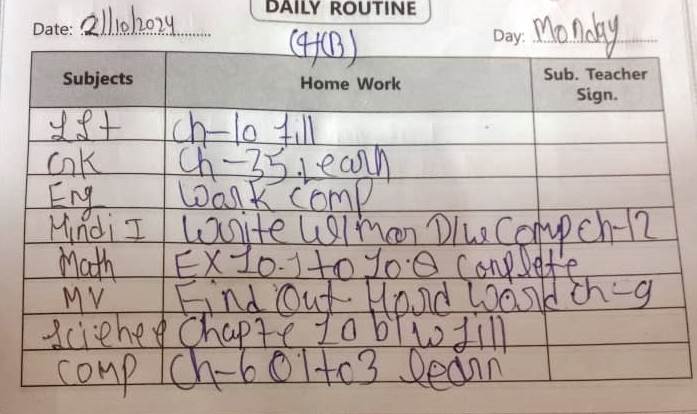 DAILY ROUTINE
Date: 21/10/2024 Day: Monday
4(B)
Subjects Home Work Sub. Teacher Sign.
SSt Ch-10 fill
GK Ch-35 Learn
Eng Wark comp
Hindi I Write Comp ch-12
Math EX 10.1 to 10.8 Complete
MV Find Out Hard Ward ch-9
Science Chapte 10 b/w fill
COMP Ch-6 Q1 to 3 learn